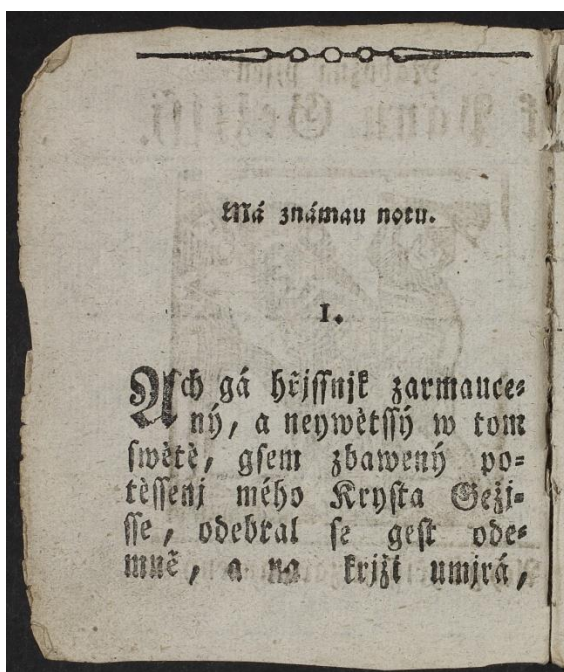 Má známau notu.
I.
Ach gá hřjssnjk zarmauce-
ný, a neywětssý w tom
swětě, gsem zbawený po-
těssenj mého Krysta Gežj-
sse, odebral se gest ode-
mně, a na křjži umjrá,